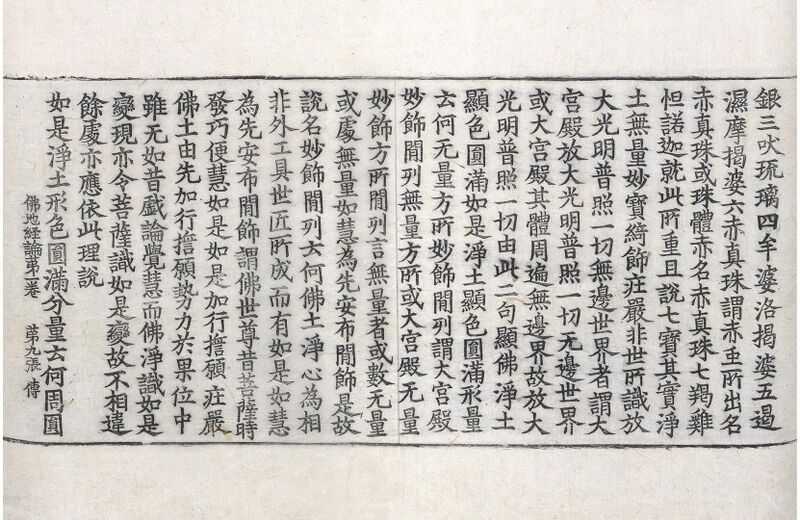 銀三吠琉璃四牟婆洛揭婆五遏
濕摩揭婆六赤真珠謂赤虫所出名
赤真珠或珠體赤名赤真珠七羯雞
怛諾迦就此所重且說七寶其實淨
土無量妙寶綺飾莊嚴非世所識放
大光明普照一切無邊世界者謂大
宮殿放大光明普照一切无邊世界
或大宮殿其體周遍無邊界故放大
光明普照一切由此二句顯佛淨土
顯色圓滿如是淨土顯色圓滿形量
云何无量方所妙飾閒列謂大宮殿
妙飾閒列無量方所或大宮殿无量
妙飾方所閒列言無量者或數无量
或處無量如慧為先安布閒飾是故
說名妙飾閒列云何佛土淨心為相
非外工具世匠所成而有如是如慧
為先安布閒飾謂佛世尊昔菩薩時
發巧便慧如是如是加行擔願莊嚴
佛土由先加行擔願勢力於果位中
雖无如昔戲論覺慧而佛淨識如是
變現亦令菩薩識如是變故不相違
餘處亦應依此理說
如是淨土形色圓滿分量云何周圓
佛地経論苐一卷 苐九張 傳